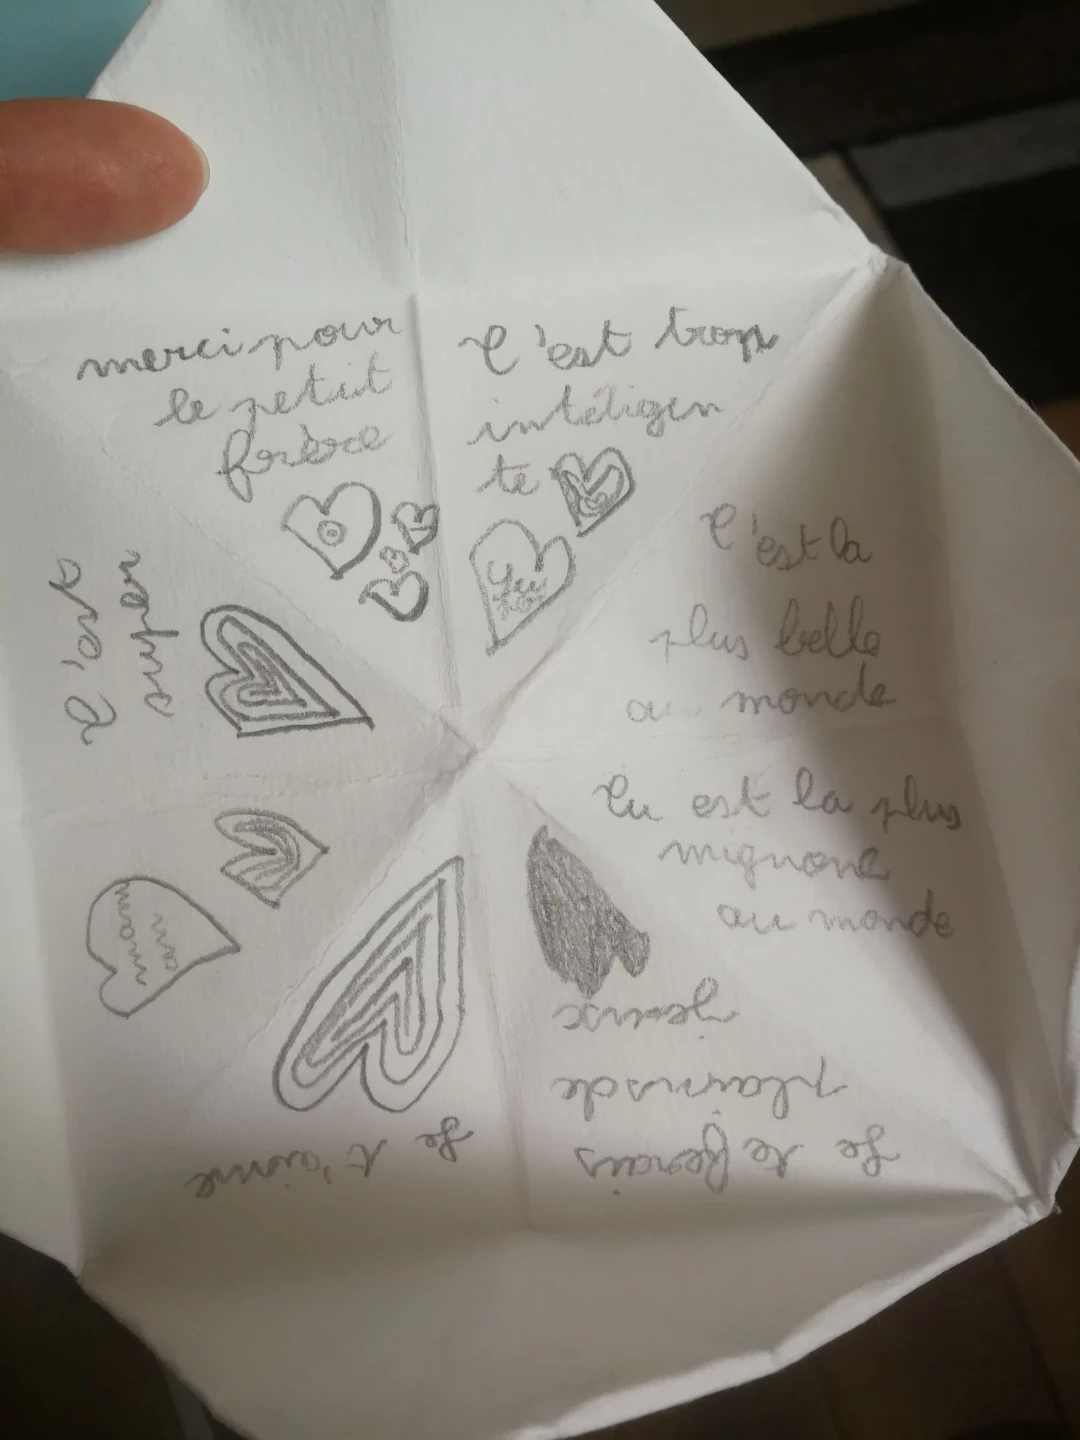 merci pour
le petit
frère
T'est trop
intéligen
te
T'est la
plus belle
au monde
Tu est la plus
mignone
au monde
Je te ferais
plains de
Je t'aime
super